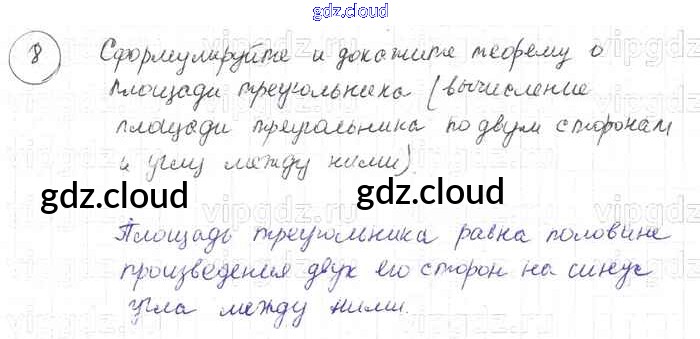 gdz.cloud
8 Сформулируйте и докажите теорему о
площади треугольника (вычисление
площади треугольника по двум сторонам
и углу между ними).
gdz.cloud gdz.cloud
Площадь треугольника равна половине
произведения двух его сторон на синус
угла между ними.